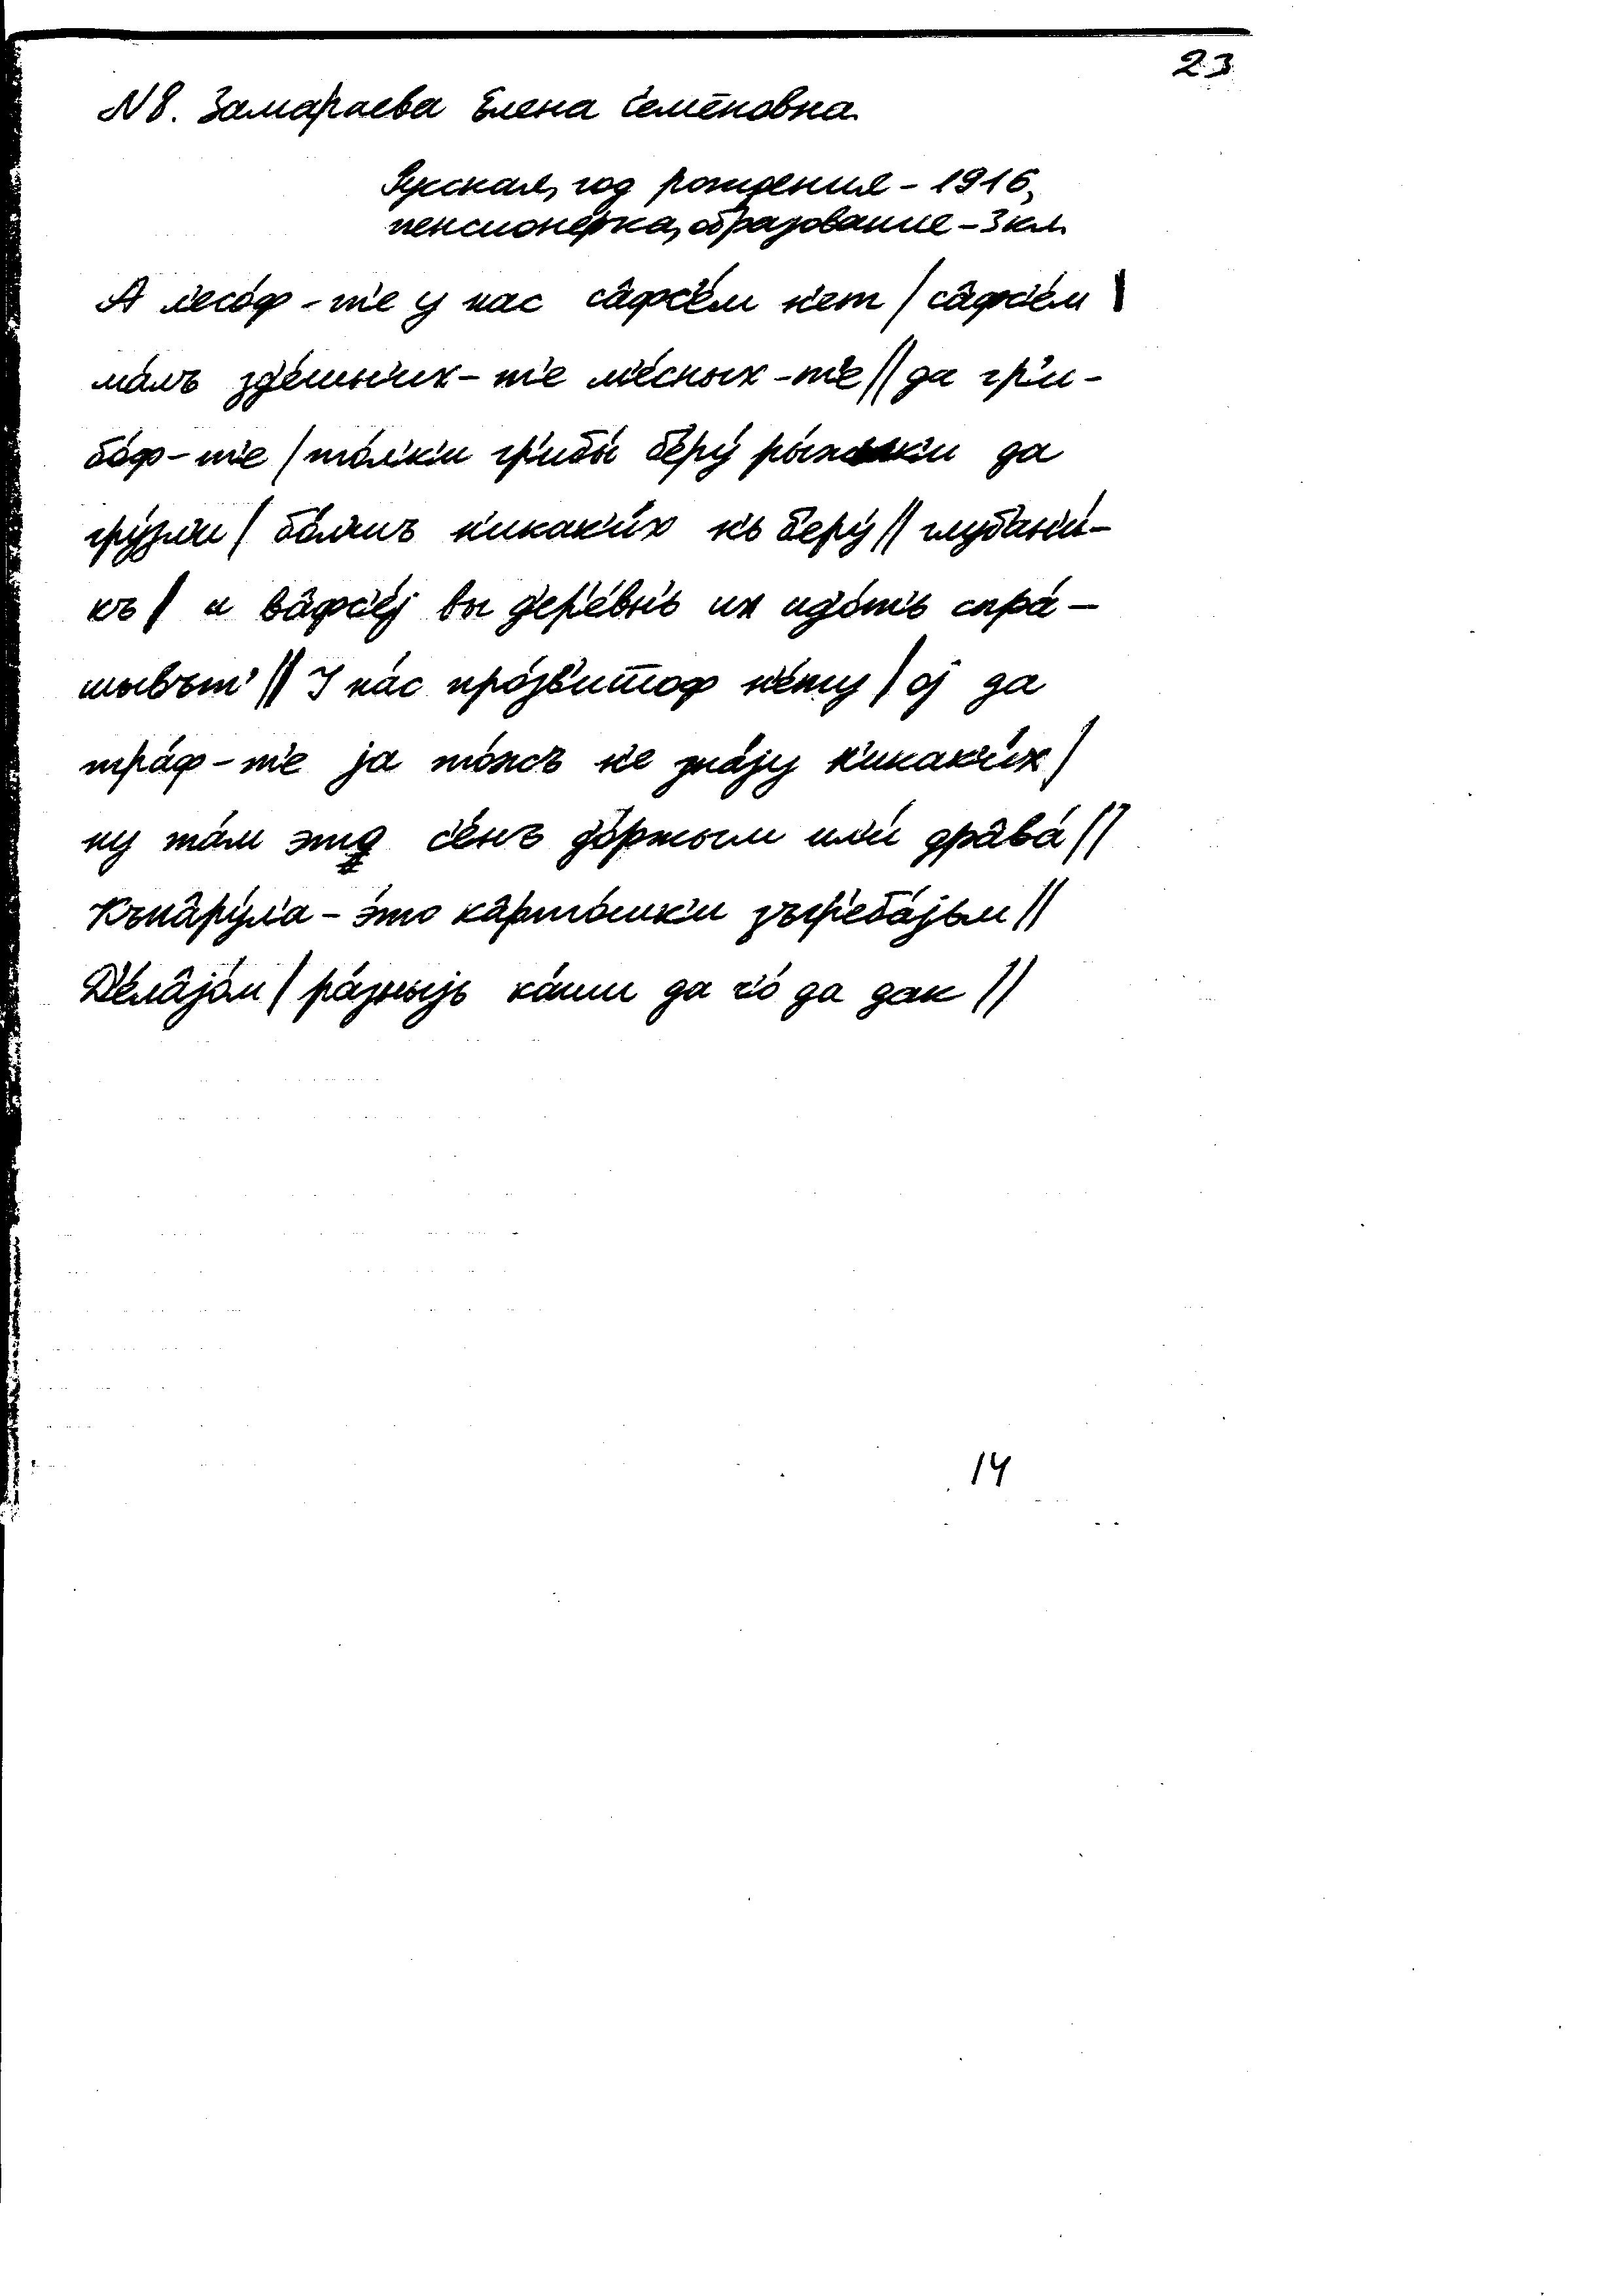 23
N 8. Замараева Елена Семёновна.
Русская, год рождения – 1916,
пенсионерка, образование – 3 кл.
А л'есо́ф - т'е у нас са̂фс'е́м н'ет / са̂фс'е́м /
ма́лъ зд'е́шн'их - т'е м'е́сных - т'е // да гр'и-
бо́ф - т'е / то́л'к'и гр'ибы́ б'еру́ ры́жык'и да
гру́зл'и / бо́л'шъ н'икак'и́х нь б'еру́ // глуб'ан'и́-
къ / и ва̂фс'е́j вы д'ер'е́вн'ь их ид'о́т'ь спра́ -
шывът' // У на́с про́зв'ищоф н'е́ту / оj да
тра́ф - т'е jа то́жъ н'е зна́jу н'икак'и́х /
ну та́м это с'е́нъ д'о́ржым ил'и́ дра̂ва́ //
Къпа̂ру́л'а – э́то ка̂рто́шк'и зъгр'еба́jьм //
Д'е́ла̂jо́м / ра́зныjь ка́ши да ч'о́ да дак //
14